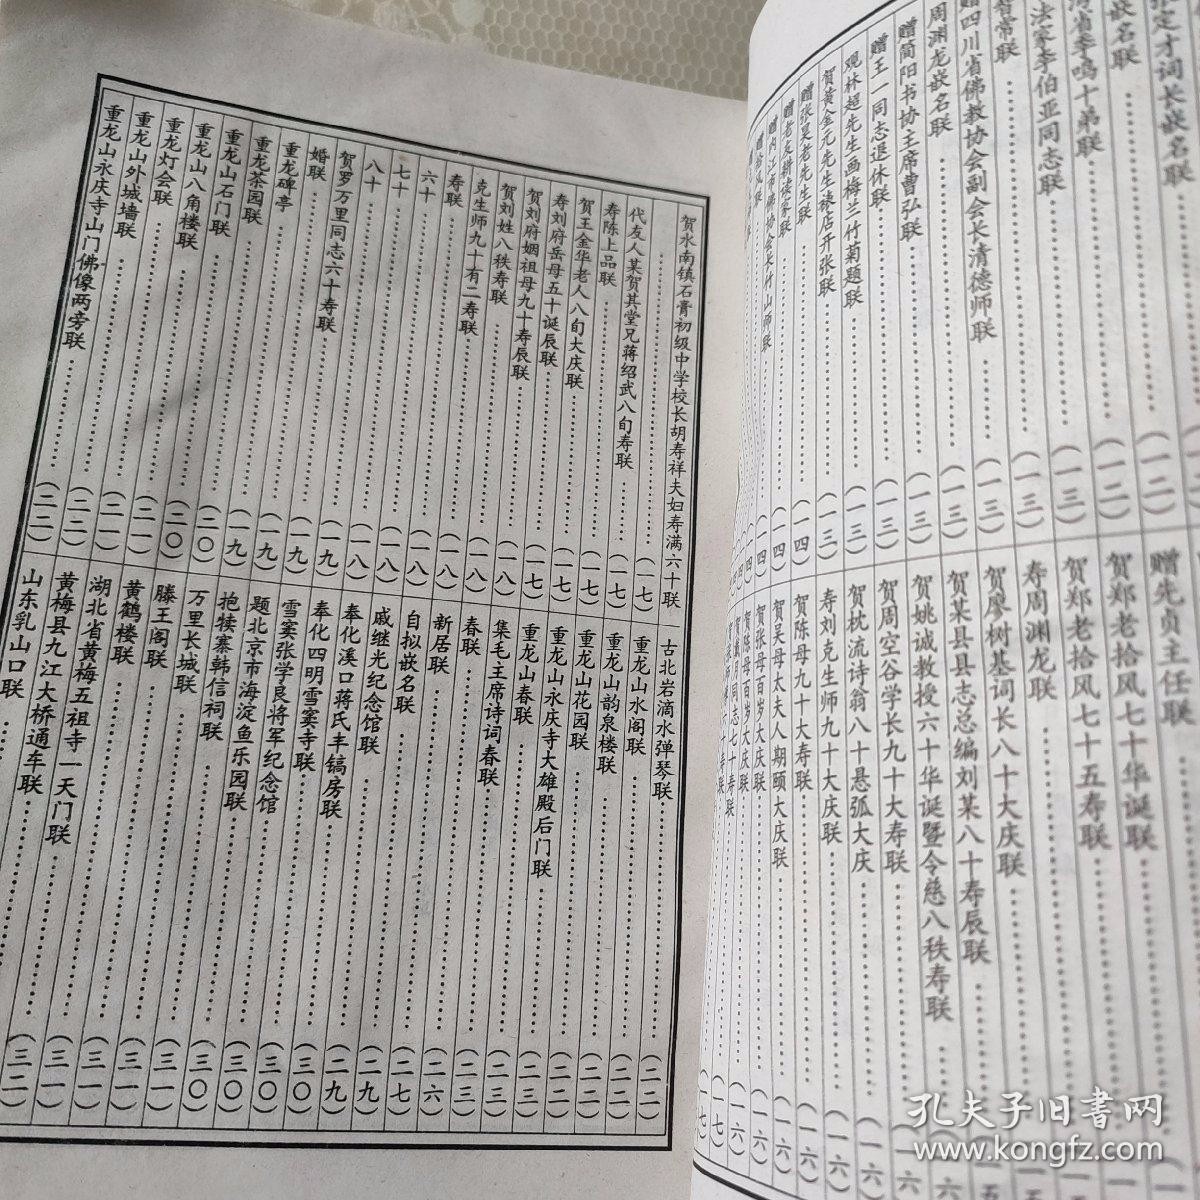 张定才词长嵌名联……(一二)
嵌名联……(一二)
清省李鸣十弟联……(一三)
法家李伯亚同志联……(一三)
智常联……(一三)
赠四川省佛教协会副会长清德师联……(一三)
周渊龙嵌名联……(一三)
赠简阳书协主席曹弘联……(一三)
赠王一同志退休联……(一三)
观林超先生画梅兰竹菊题联……(一三)
贺黄金元先生裱店开张联……(一三)
赠张昊老先生联……(一四)
赠老友耕读家联……(一四)
赠内江市佛协会长竹山师联……(一四)
赠先贞主任联
贺郑老拾风七十华诞联
贺郑老拾风七十五寿联
寿周渊龙联
贺廖树基词长八十大庆联
贺某县县志总编刘某八十寿辰联
贺姚诚教授六十华诞暨令慈八秩寿联
贺周空谷学长九十大寿联……(一六)
贺枕流诗翁八十悬弧大庆……(一六)
寿刘克生师九十大庆联……(一六)
贺陈母九十大寿联……(一六)
贺吴母太夫人期颐大庆联……(一六)
贺张母百岁大庆联……(一六)
贺陈母百岁大庆联……(一六)
贺戴月同志七十寿联……(一七)
贺水南镇石膏初级中学校长胡寿祥夫妇寿满六十联
……(一七)
代友人某贺其堂兄蒋绍武八旬寿联……(一七)
寿陈上品联……(一七)
贺王金华老人八旬大庆联……(一七)
寿刘府岳母五十诞辰联……(一七)
贺刘府姻祖母九十寿辰联……(一七)
贺刘姓八秩寿联……(一八)
克生师九十有二寿联……(一八)
寿联……(一八)
六十……(一八)
七十……(一八)
八十……(一八)
贺罗万里同志六十寿联……(一九)
婚联……(一九)
重龙碑亭……(一九)
重龙茶园联……(一九)
重龙山石门联……(二〇)
重龙山八角楼联……(二〇)
重龙灯会联……(二一)
重龙山外城墙联……(二一)
重龙山永庆寺山门佛像两旁联……(二二)
古北岩滴水弹琴联……(二二)
重龙山水阁联……(二二)
重龙山韵泉楼联……(二二)
重龙山花园联……(二二)
重龙山永庆寺大雄殿后门联……(二三)
重龙山春联……(二三)
集毛主席诗词春联……(二三)
春联……(二三)
新居联……(二六)
自拟嵌名联……(二七)
戚继光纪念馆联……(二九)
奉化溪口蒋氏丰镐房联……(二九)
奉化四明雪窦寺联……(三〇)
雪窦张学良将军纪念馆……(三〇)
题北京市海淀鱼乐园联……(三〇)
抱犊寨韩信祠联……(三〇)
万里长城联……(三〇)
滕王阁联……(三一)
黄鹤楼联……(三一)
湖北省黄梅五祖寺一天门联……(三一)
黄梅县九江大桥通车联……(三一)
山东乳山口联……(三二)
孔夫子旧书网
www.kongfz.com